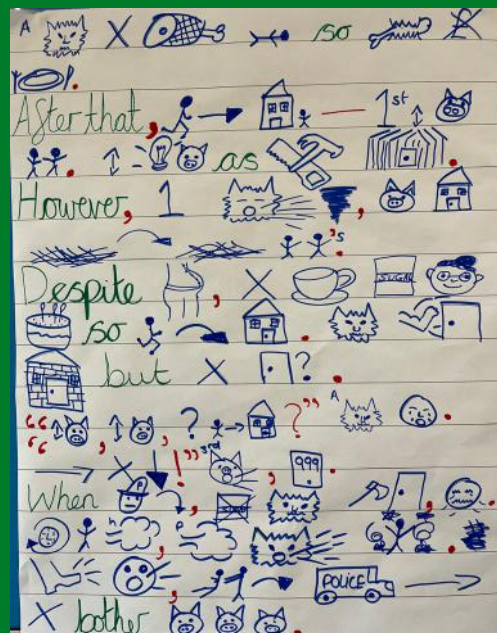 A so
After that, 1st
as .
However, 1 ,
's.
Despite , SUGAR
so .
but ? .
“ , , ? ?” A .
! ” 3rd , 999 .
When , , .
, .
, POLICE
bother .